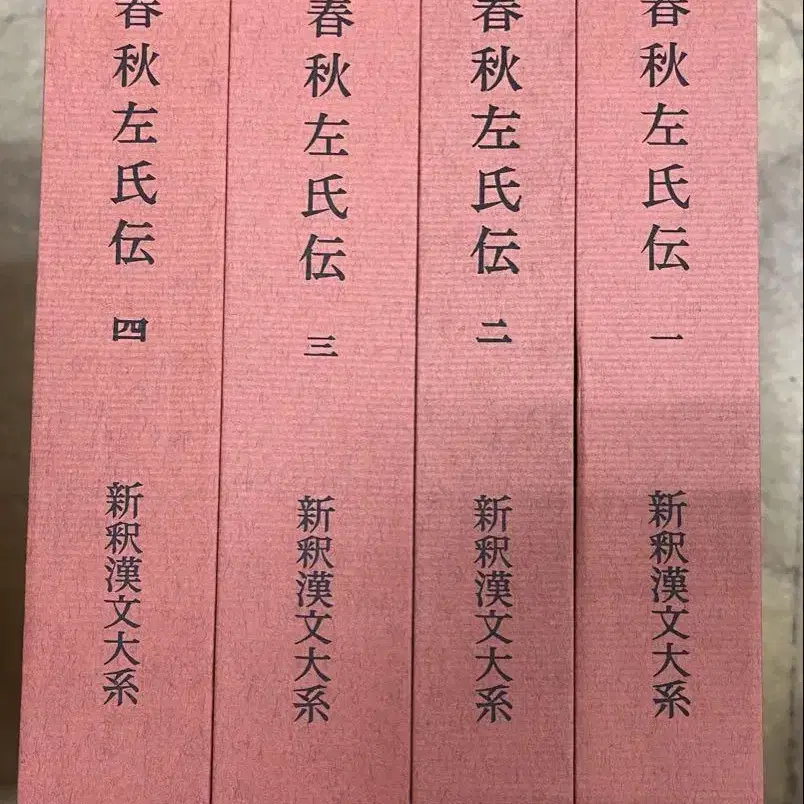 春秋左氏伝 一 新釈漢文大系
春秋左氏伝 二 新釈漢文大系
春秋左氏伝 三 新釈漢文大系
春秋左氏伝 四 新釈漢文大系